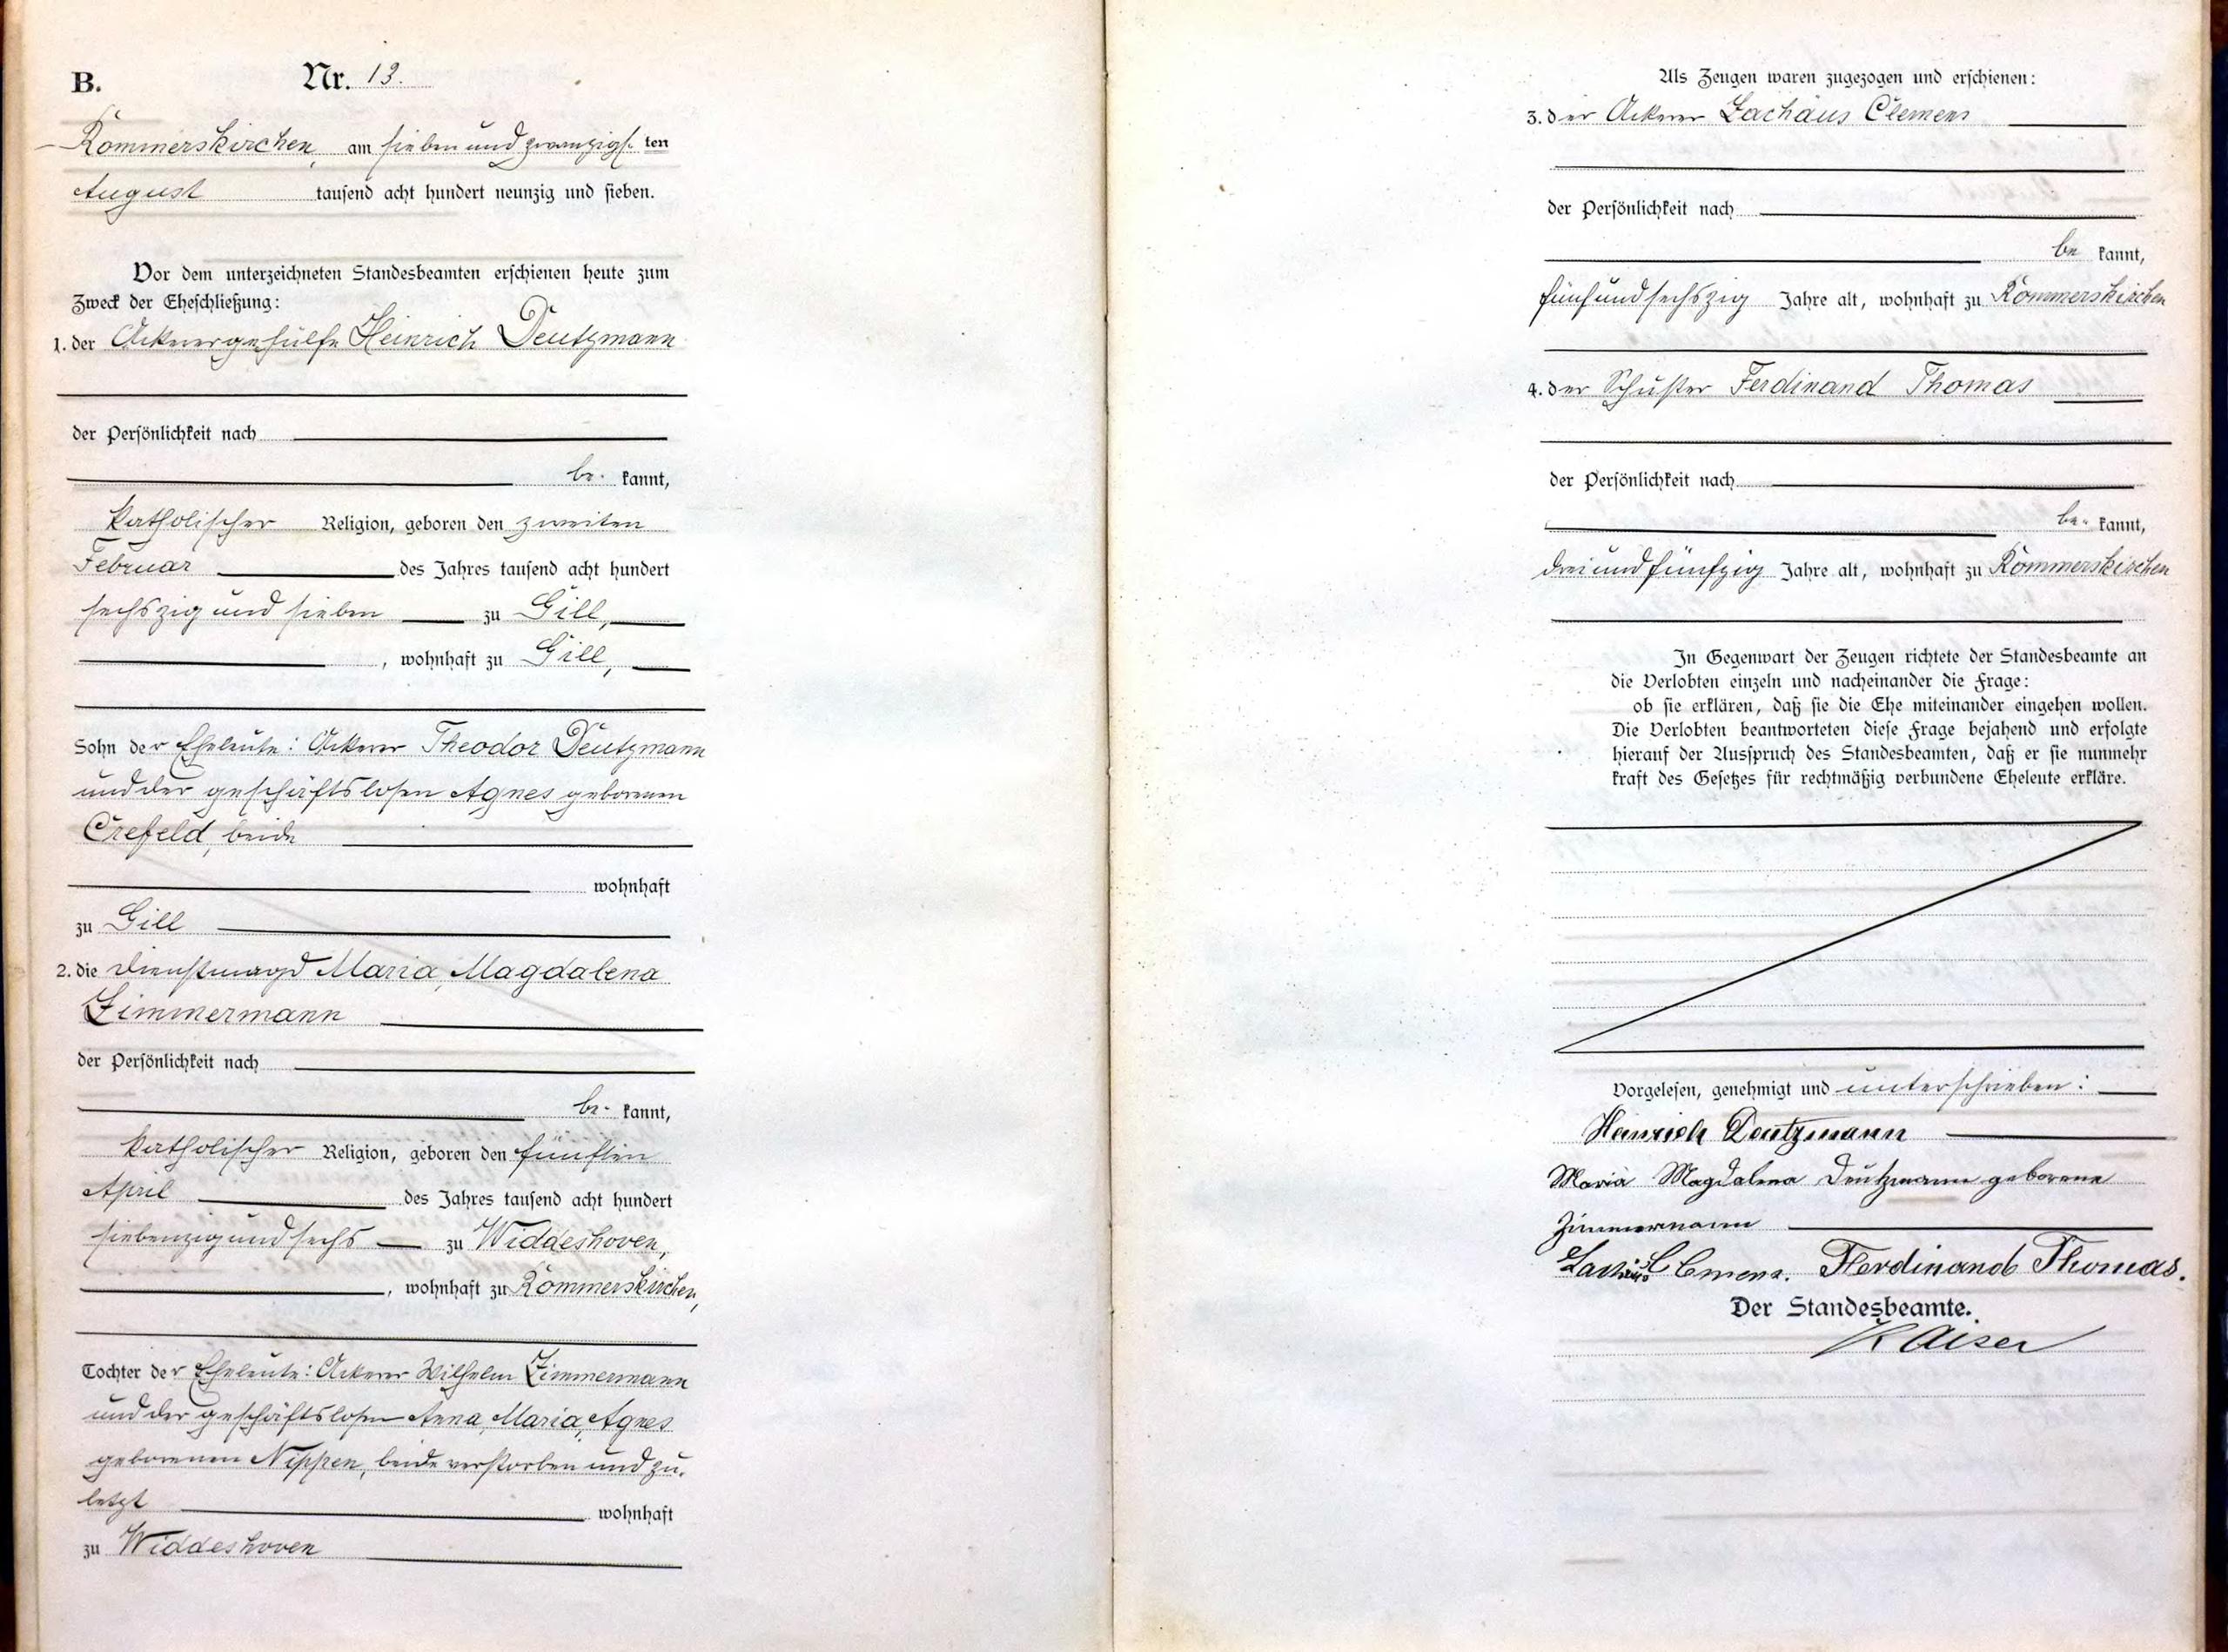 B. Nr. 13.
Rommerskirchen, am sieben und zwanzigsten
August tausend acht hundert neunzig und sieben.
Vor dem unterzeichneten Standesbeamten erschienen heute zum
Zweck der Eheschließung:
1. der Ackerergehülfe Heinrich Deutzmann
der Persönlichkeit nach
be- kannt,
katholischer Religion, geboren den zweiten
Februar des Jahres tausend acht hundert
sechszig und sieben zu Gill,
, wohnhaft zu Gill,
Sohn der Eheleute: Ackerer Theodor Deutzmann
und der geschäftslosen Agnes geborenen
Crefeld, beide
wohnhaft
zu Gill
2. die Dienstmagd Maria Magdalena
Zimmermann
der Persönlichkeit nach
be- kannt,
katholischer Religion, geboren den fünften
April des Jahres tausend acht hundert
siebenzig und sechs zu Widdeshoven,
, wohnhaft zu Rommerskirchen,
Tochter der Eheleute: Ackerer Wilhelm Zimmermann
und der geschäftslosen Anna, Maria, Agnes
geborenen Nippen, beide verstorben und zu-
letzt wohnhaft
zu Widdeshoven
Als Zeugen waren zugezogen und erschienen:
3. der Ackerer Zachäus Clemens
der Persönlichkeit nach
be kannt,
fünf und sechszig Jahre alt, wohnhaft zu Rommerskirchen
4. der Schuster Ferdinand Thomas
der Persönlichkeit nach
be- kannt,
drei und fünfzig Jahre alt, wohnhaft zu Rommerskirchen
In Gegenwart der Zeugen richtete der Standesbeamte an
die Verlobten einzeln und nacheinander die Frage:
ob sie erklären, daß sie die Ehe miteinander eingehen wollen.
Die Verlobten beantworteten diese Frage bejahend und erfolgte
hierauf der Ausspruch des Standesbeamten, daß er sie nunmehr
kraft des Gesetzes für rechtmäßig verbundene Eheleute erkläre.
Vorgelesen, genehmigt und unterschrieben:
Heinrich Deutzmann
Maria Magdalena Deutzmann geborene
Zimmermann
Zachäus Clemens. Ferdinand Thomas.
Der Standesbeamte.
Kaiser